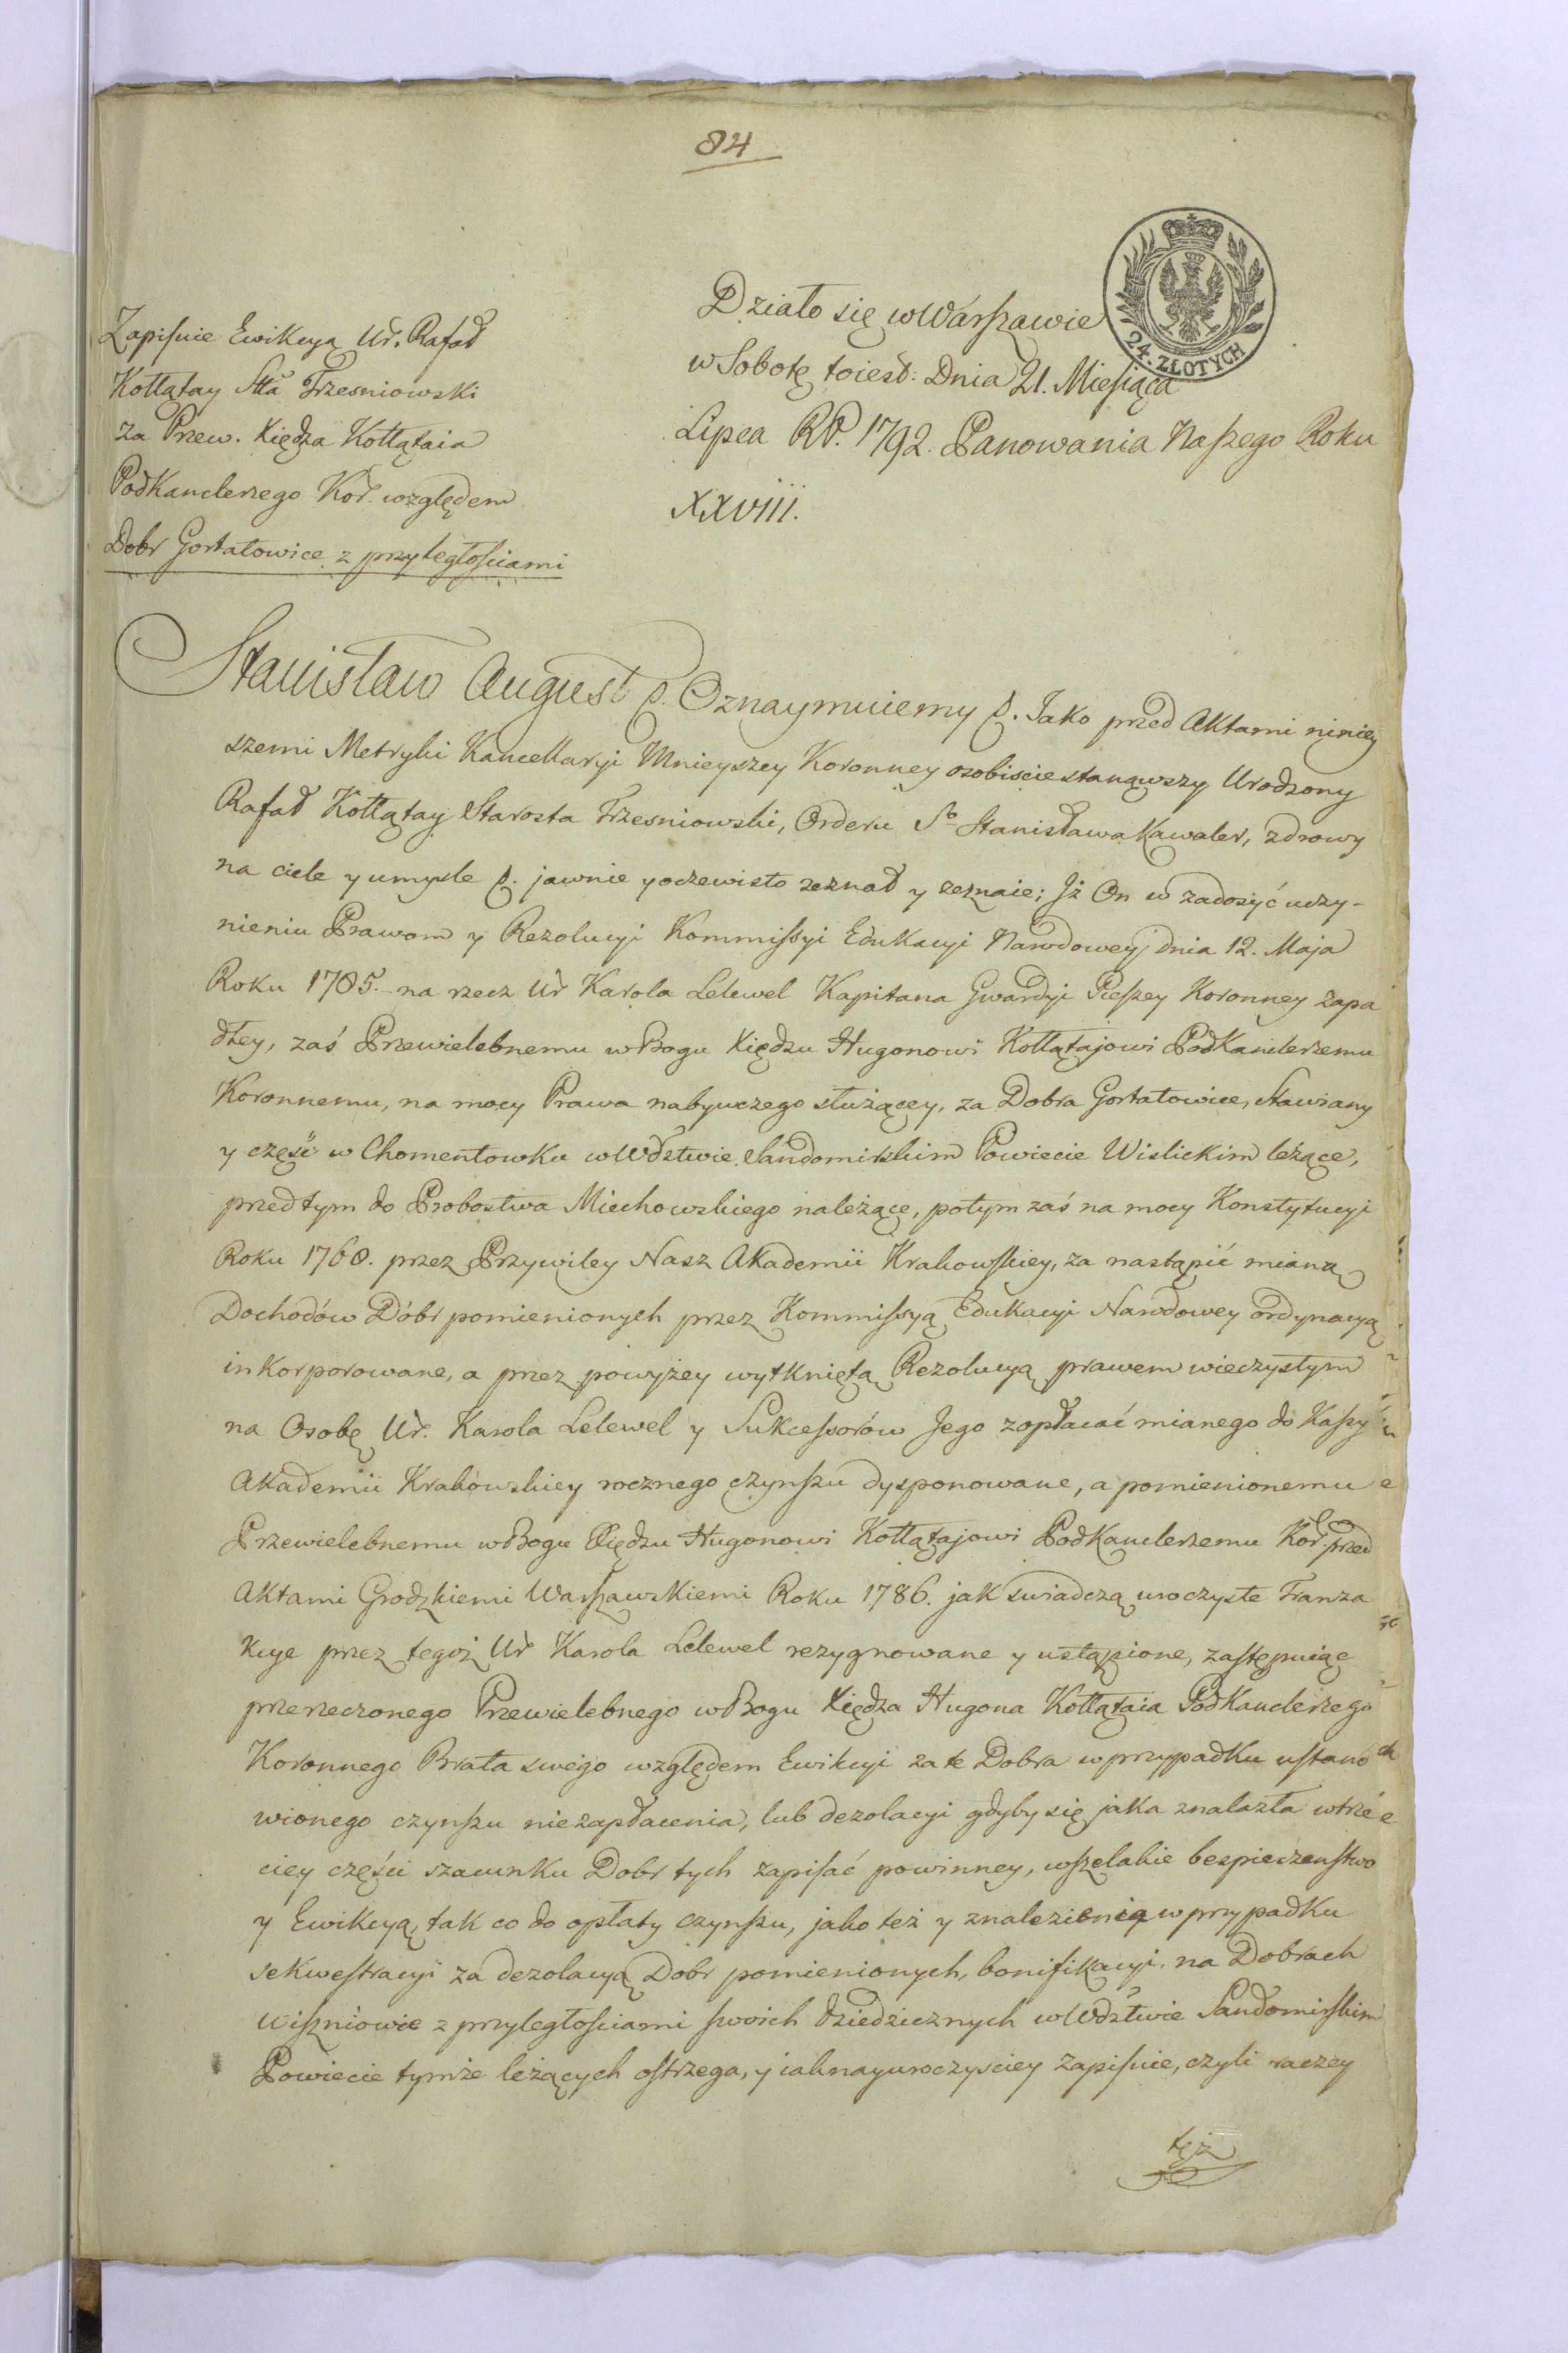 84
24. ZŁOTYCH
Działo się w Warszawie
w Sobotę toiest: Dnia 21. Miesiąca
Lipca RP. 1792. Panowania Naszego Roku
XXVIII.
Zapisuie Ewikcyą Ur. Rafał
Kołłątay Stta Trzesniowski
za Przew. Xiędza Kołłątaia
PodKanclerzego Kor. względem
Dobr Gortatowice z przyległościami
Stanisław August p. Oznaymuiemy p. Jako przed Aktami niniey
szemi Metryki Kancellaryi Mnieyszey Koronney osobiscie stanąwszy Urodzony
Rafał Kołłątay Starosta Trzesniowski, Orderu So Stanisława Kawaler, zdrowy
na ciele y umysle p. jawnie y oczewisto zeznał y zeznaie; Iż On w zadosyć uczy-
nieniu Prawom y Rezolucyi Kommissyi Edukacyi Narodowey dnia 12. Maja
Roku 1785. na rzecz Ur Karola Lelewel Kapitana Gwardyi Pieszey Koronney zapa
dłey, zaś Przewielebnemu w Bogu Xiędzu Hugonowi Kołłątajowi PodKanclerzemu
Koronnemu, na mocy Prawa nabywczego służącey, za Dobra Gortatowice, Stawiany
y część w Chomentowku w Wdztwie Sandomirskim Powiecie Wislickim leżące,
przed tym do Probostwa Miechowskiego należące, potym zaś na mocy Konstytucyi
Roku 1768. przez Przywiley Nasz Akademii Krakowskiey, za nastąpić mianą
Dochodów Dóbr pomienionych przez Kommissyą Edukacyi Narodowey ordynacyą
inkorporowane, a przez powyżey wytkniętą Rezolucyą prawem wieczystym
na Osobę Ur. Karola Lelewel y Sukcessorów Jego z opłacać mianego do Kassy
Akademii Krakowskiey rocznego czynszu dysponowane, a pomienionemu
Przewielebnemu w Bogu Xiędzu Hugonowi Kołłątajowi PodKanclerzemu Kor. przed
Aktami Grodzkiemi Warszawskiemi Roku 1786. jak swiadczą uroczyste Tranza
kcye przez tegoż Ur Karola Lelewel rezygnowane y ustąpione, zastępuiąc
przerzeczonego Przewielebnego w Bogu Xiędza Hugona Kołłątaia PodKanclerzego
Koronnego Brata swego względem Ewikcyi za te Dobra w przypadku ustano
wionego czynszu niezapłacenia, lub dezolacyi gdyby się jaka znalazła w trze
ciey części szacunku Dobr tych zapisać powinney, wszelakie bespieczenstwo
y Ewikcyą, tak co do opłaty czynszu, jako też y znalezienia w przypadku
sekwestracyi za dezolacyą Dobr pomienionych, bonifikacyi, na Dobrach
Wiszniowie z przyległościami swoich dziedzicznych w Wdztwie Sandomirskim
Powiecie tymże leżących ostrzega, y iaknayuroczysciey zapisuie, czyli raczey
też